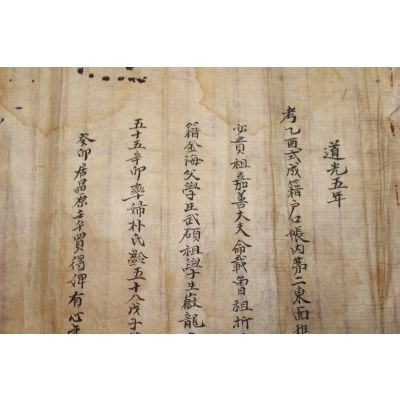 道光五年
考乙酉式成籍户口帳内第二東面
必貴祖嘉善大夫命載曾祖折
籍金海父學生武碩祖學生嶽龍
五十五辛卯率婦朴氏齡五十八戊子
癸卯居昌原壬午買得婢有心